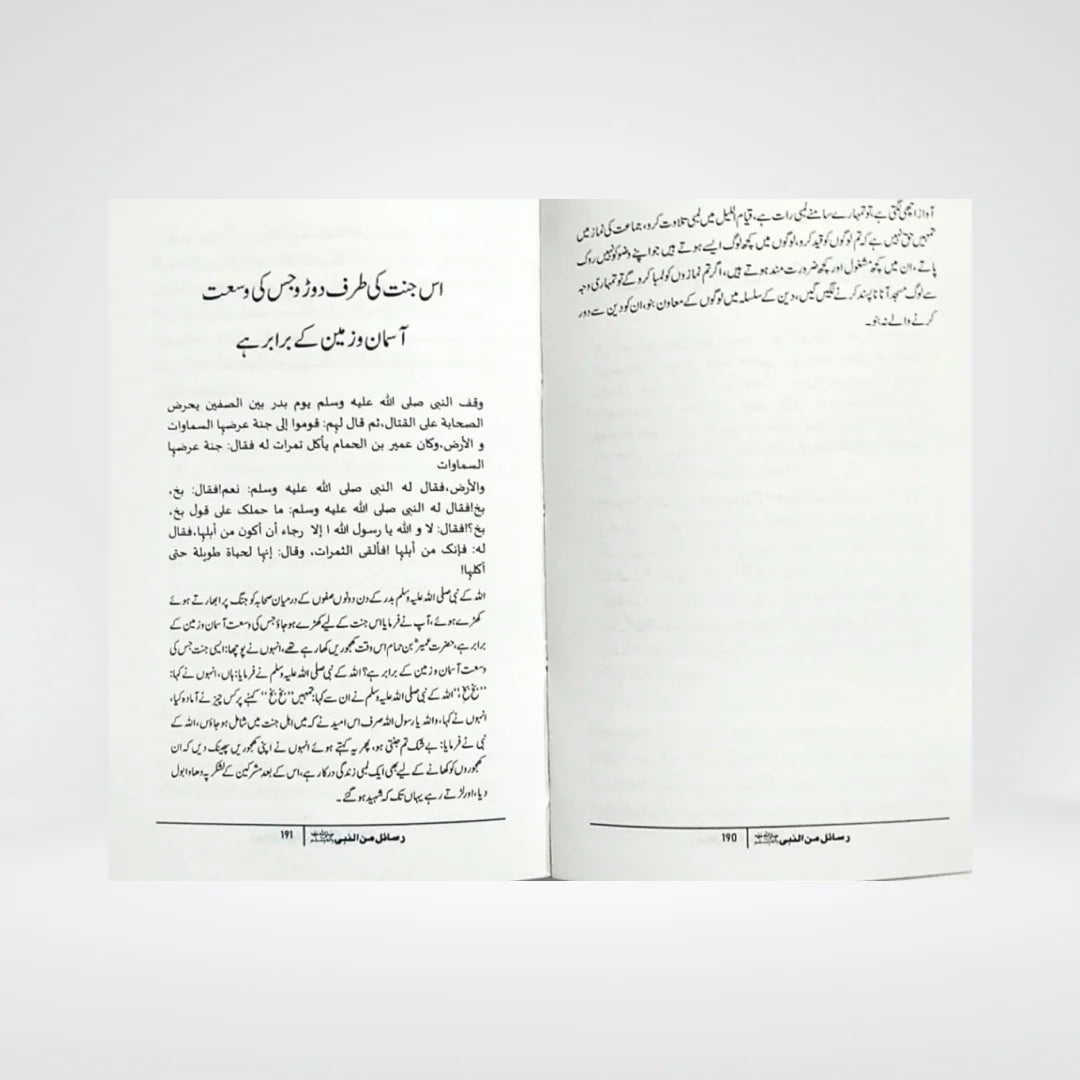 آواز اچھی لگتی ہے، تو تمہارے سامنے لمبی رات ہے، قیام اللیل میں لمبی تلاوت کرو، جماعت کی نماز میں
تمہیں حق نہیں ہے کہ تم لوگوں کو قید کرو، لوگوں میں کچھ لوگ ایسے ہوتے ہیں جو اپنے وضو کو نہیں روک
پاتے، ان میں کچھ مشغول اور کچھ ضرورت مند ہوتے ہیں، اگر تم نمازوں کو لمبا کرو گے تو تمہاری وجہ
سے لوگ مسجد آنا نا پسند کرنے لگیں گیں، دین کے سلسلہ میں لوگوں کے معاون بنو، ان کو دین سے دور
کرنے والے نہ بنو۔
رسائل من النبی ﷺ | 190
اس جنت کی طرف دوڑو جس کی وسعت
آسمان و زمین کے برابر ہے
وقف النبی صلی اللہ علیه وسلم یوم بدر بین الصفین یحرض
الصحابة علی القتال،ثم قال لہم: قوموا إلی جنة عرضہا السماوات
و الأرض،وکان عمیر بن الحمام یأکل ثمرات له فقال: جنة عرضہا
السماوات
والأرض،فقال له النبی صلی اللہ علیه وسلم: نعم!فقال: بخ،
بخ!فقال له النبی صلی اللہ علیه وسلم: ما حملک علی قول بخ،
بخ؟!فقال: لا و اللہ یا رسول اللہ ا إلا رجاء أن أکون من أہلہا،فقال
له: فإنک من أہلہا !فألقی الثمرات، وقال: إنہا لحیاة طویلة حتی
أکلہا!
اللہ کے نبی صلی اللہ علیہ وسلم بدر کے دن دونوں صفوں کے درمیان صحابہ کو جنگ پر ابھارتے ہوئے
کھڑے ہوئے، آپ نے فرمایا اس جنت کے لیے کھڑے ہو جاؤ جس کی وسعت آسمان و زمین کے
برابر ہے، حضرت عمیرؓ بن حمام اس وقت کھجوریں کھا رہے تھے، انہوں نے پوچھا: ایسی جنت جس کی
وسعت آسمان و زمین کے برابر ہے؟ اللہ کے نبی صلی اللہ علیہ وسلم نے فرمایا: ہاں، انہوں نے کہا:
"بخ بخ!" اللہ کے نبی صلی اللہ علیہ وسلم نے ان سے کہا: تمہیں "بخ بخ" کہنے پر کس چیز نے آمادہ کیا،
انہوں نے کہا، واللہ یا رسول اللہ صرف اس امید نے کہ میں اہل جنت میں شامل ہو جاؤں، اللہ کے
نبی نے فرمایا: بے شک تم جنتی ہو، پھر یہ کہتے ہوئے انہوں نے اپنی کھجوریں پھینک دیں کہ ان
کھجوروں کو کھانے کے لیے بھی ایک لمبی زندگی درکار ہے، اس کے بعد مشرکین کے لشکر پہ دھاوا بول
دیا، اور لڑتے رہے یہاں تک کہ شہید ہو گئے۔
رسائل من النبی ﷺ | 191